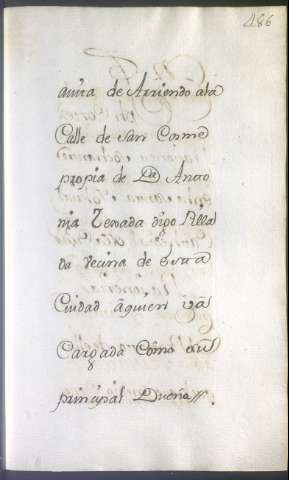 486
avita de Arriendo ala
Calle de San Cosme
propia de Da Anto
nia Texada digo Villa
da vecina de esta
Ciudad âquien vâ
Cargada Como asu
principal Dueña